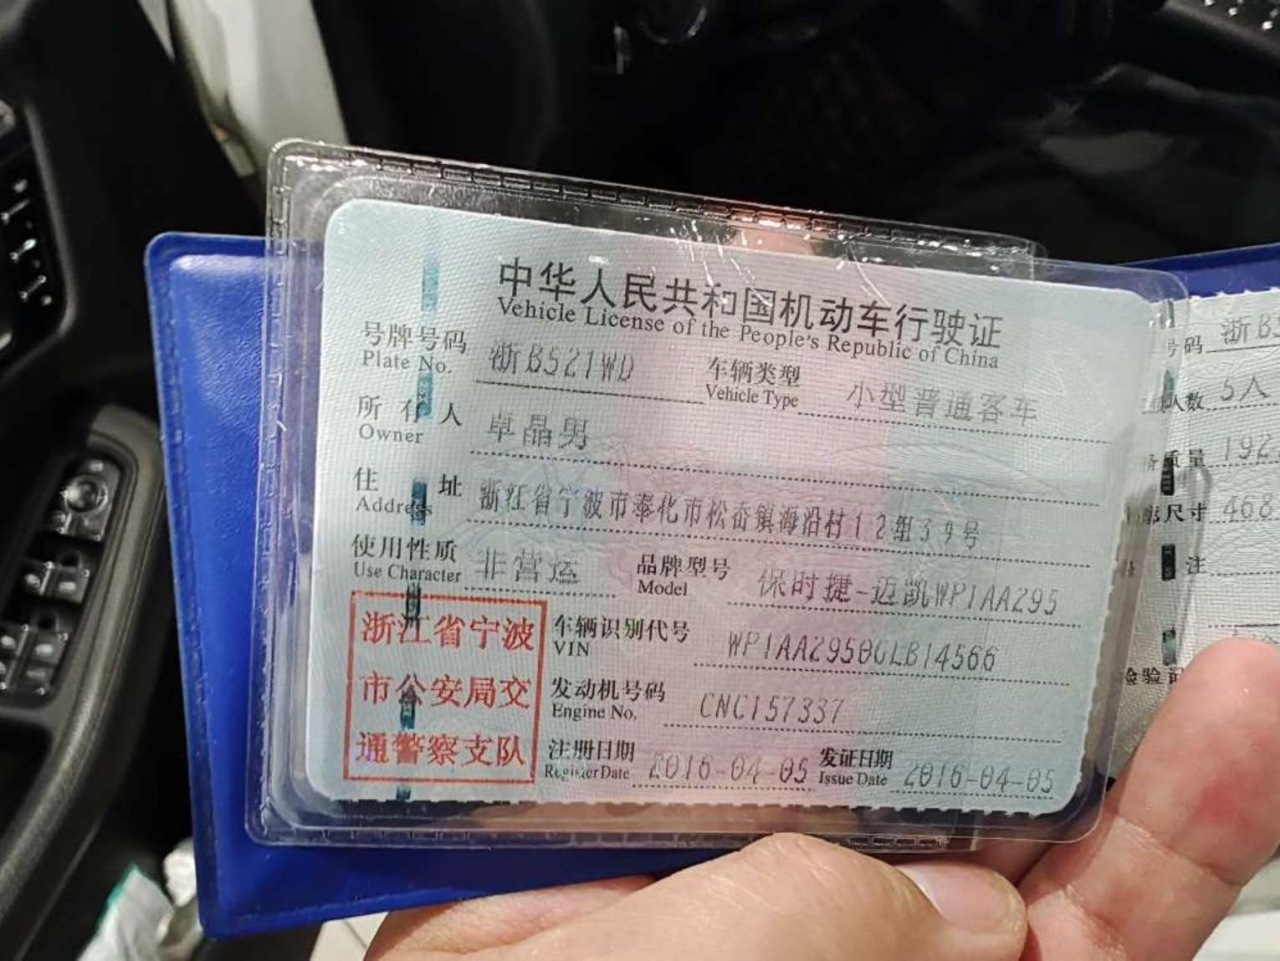 中华人民共和国机动车行驶证
Vehicle License of the People's Republic of China
号牌号码 浙B521WD 车辆类型 小型普通客车
Plate No. Vehicle Type
所有人 卓晶男
Owner
住址 浙江省宁波市奉化市松岙镇海沿村12组39号
Address
使用性质 非营运 品牌型号 保时捷-迈凯WP1AA295
Use Character Model
浙江省宁波
市公安局交
通警察支队
车辆识别代号 WP1AA2950GLB14566
VIN
发动机号码 CNC157337
Engine No.
注册日期 2016-04-05 发证日期 2016-04-05
Register Date Issue Date
号码 浙B
人数 5人
质量 192
尺寸 468
注
检验